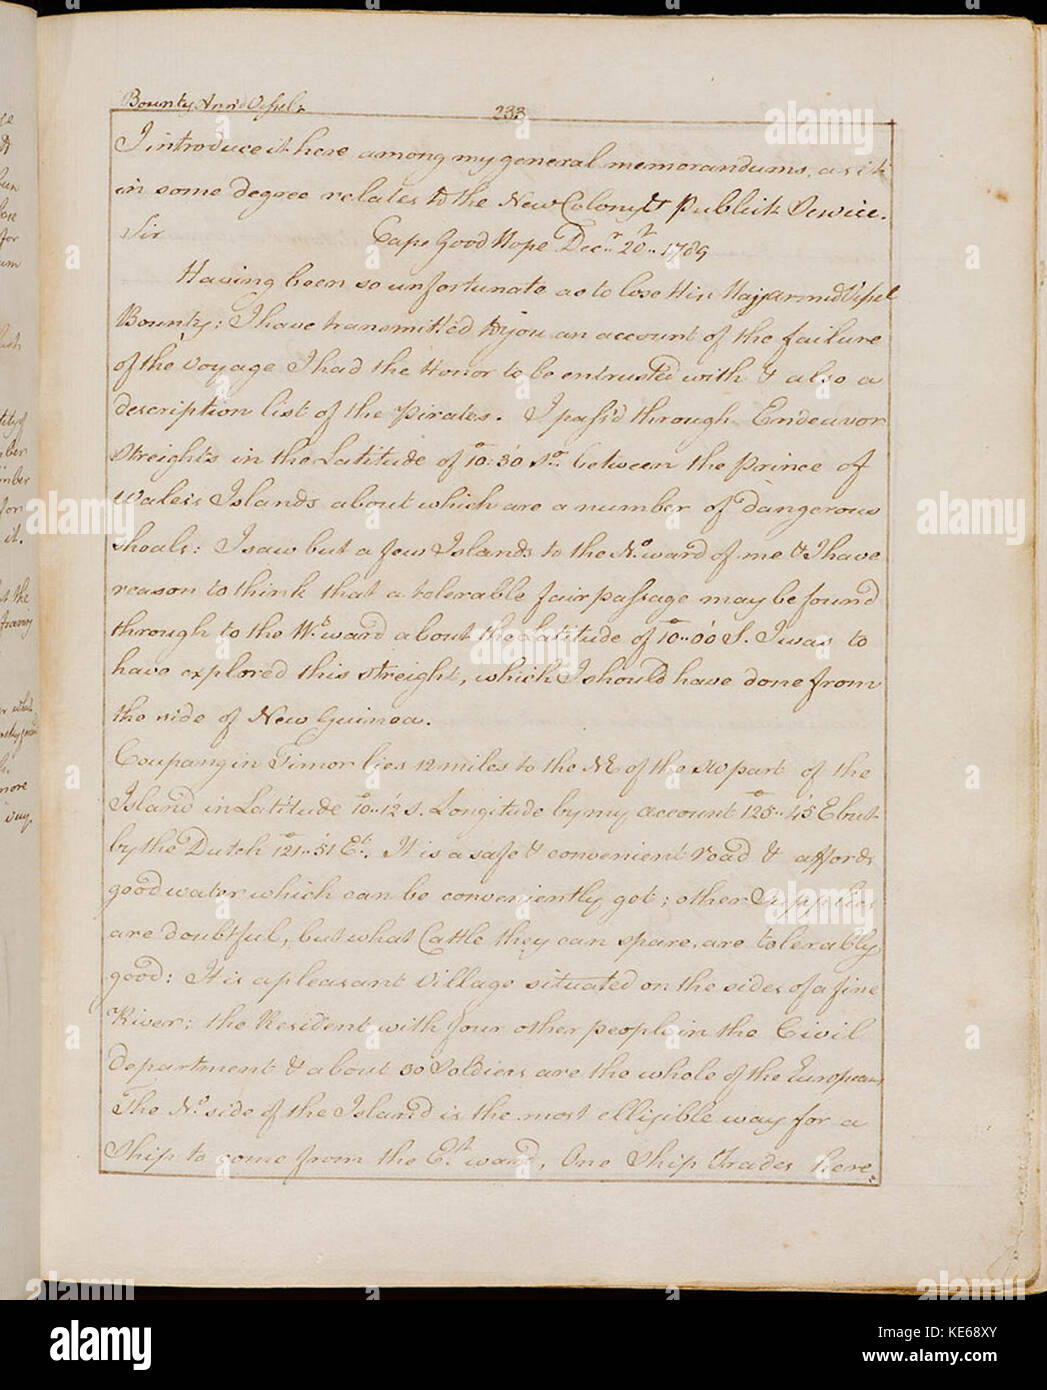 Bounty Arm'd Vessel
233
I introduce it here among my general memorandums, as it
in some degree relates to the New Colony & Publick Service.
Sir Cape Good Hope Decr. 20.. 1789
Having been so unfortunate as to lose His Majs armed Vessel
Bounty; I have transmitted to you an account of the failure
of the voyage I had the Honor to be entrusted with & also a
description list of the Pirates. I pass'd through Endeavor
Streights in the Latitude of 10°:30' So. between the Prince of
Wales's Islands about which are a number of dangerous
Shoals: I saw but a few Islands to the No.ward of me & I have
reason to think that a tolerable fair passage may be found
through to the Wt.ward about the Latitude of 10°..00' S. I was to
have explored this streight, which I should have done from
the side of New Guinea.
Coupang in Timor lies 12 miles to the NE of the SW part of the
Island in Latitude 10°..12' S. Longitude by my account 125°..45' E but
by the Dutch 121°..51' Et. It is a safe & convenient road & affords
good water which can be conveniently got; other Supplies
are doubtful, but what Cattle they can spare, are tolerably
good: It is a pleasant Village situated on the sides of a fine
River; the Resident with four other people in the Civil
department & about 50 Soldiers are the whole of the Europeans
The No. side of the Island is the most elligible way for a
Ship to come from the Et.ward, One Ship Trades here
alamy
a
alamy
Image ID: KE68XY
www.alamy.com